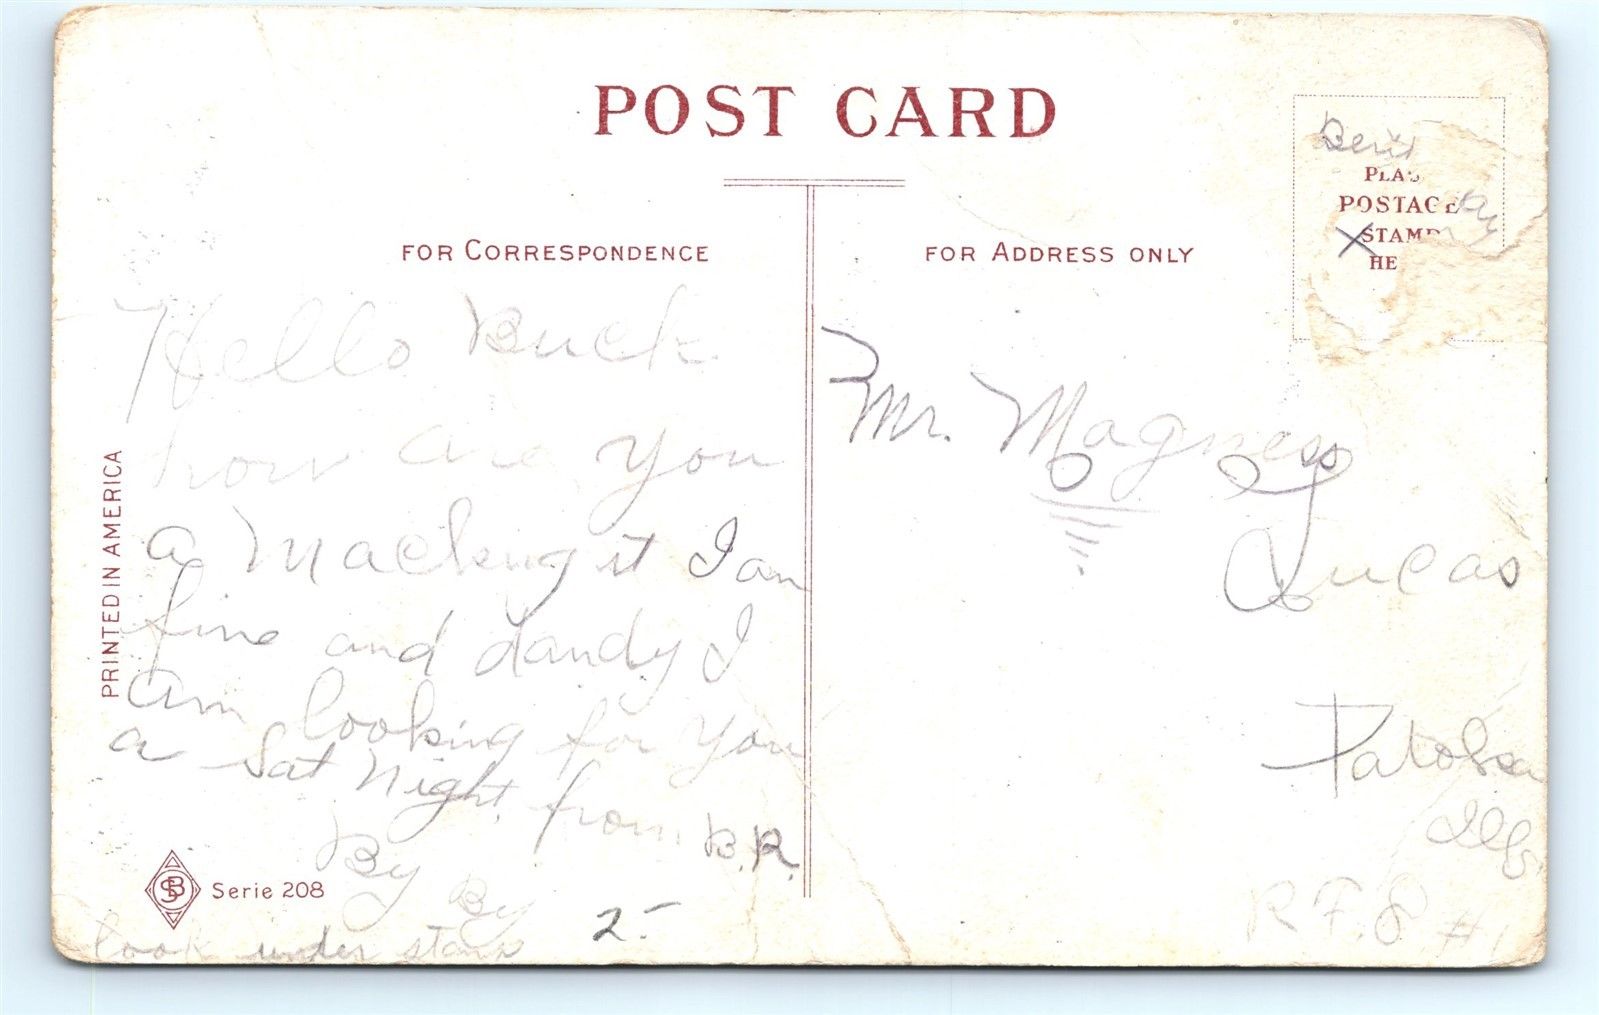 POST CARD
FOR CORRESPONDENCE
Hello Buck
how are you
a Macking it I am
fine and dandy I
am looking for you
a Sat Night from B.R.
By By
look under stamp
2-
PRINTED IN AMERICA
SB Serie 208
FOR ADDRESS ONLY
PLAC
POSTAGE
STAMP
HE
X
Mr. Magness
Lucas
Patoka
Ills.
R.F.D #1